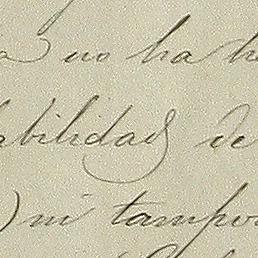 no ha
abilidad de
) ni tampo